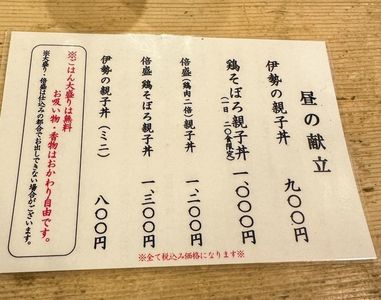 昼の献立
伊勢の親子丼 九〇〇円
鶏そぼろ親子丼 一、〇〇〇円
(一日二〇食限定)
倍盛(鶏肉二倍)親子丼 一、二〇〇円
倍盛 鶏そぼろ親子丼 一、三〇〇円
伊勢の親子丼(ミニ) 八〇〇円
※ごはん大盛りは無料
お吸い物・香物はおかわり自由です。
※大盛り・倍盛は仕込みの都合でお出しできない場合がございます。
※全て税込み価格になります※